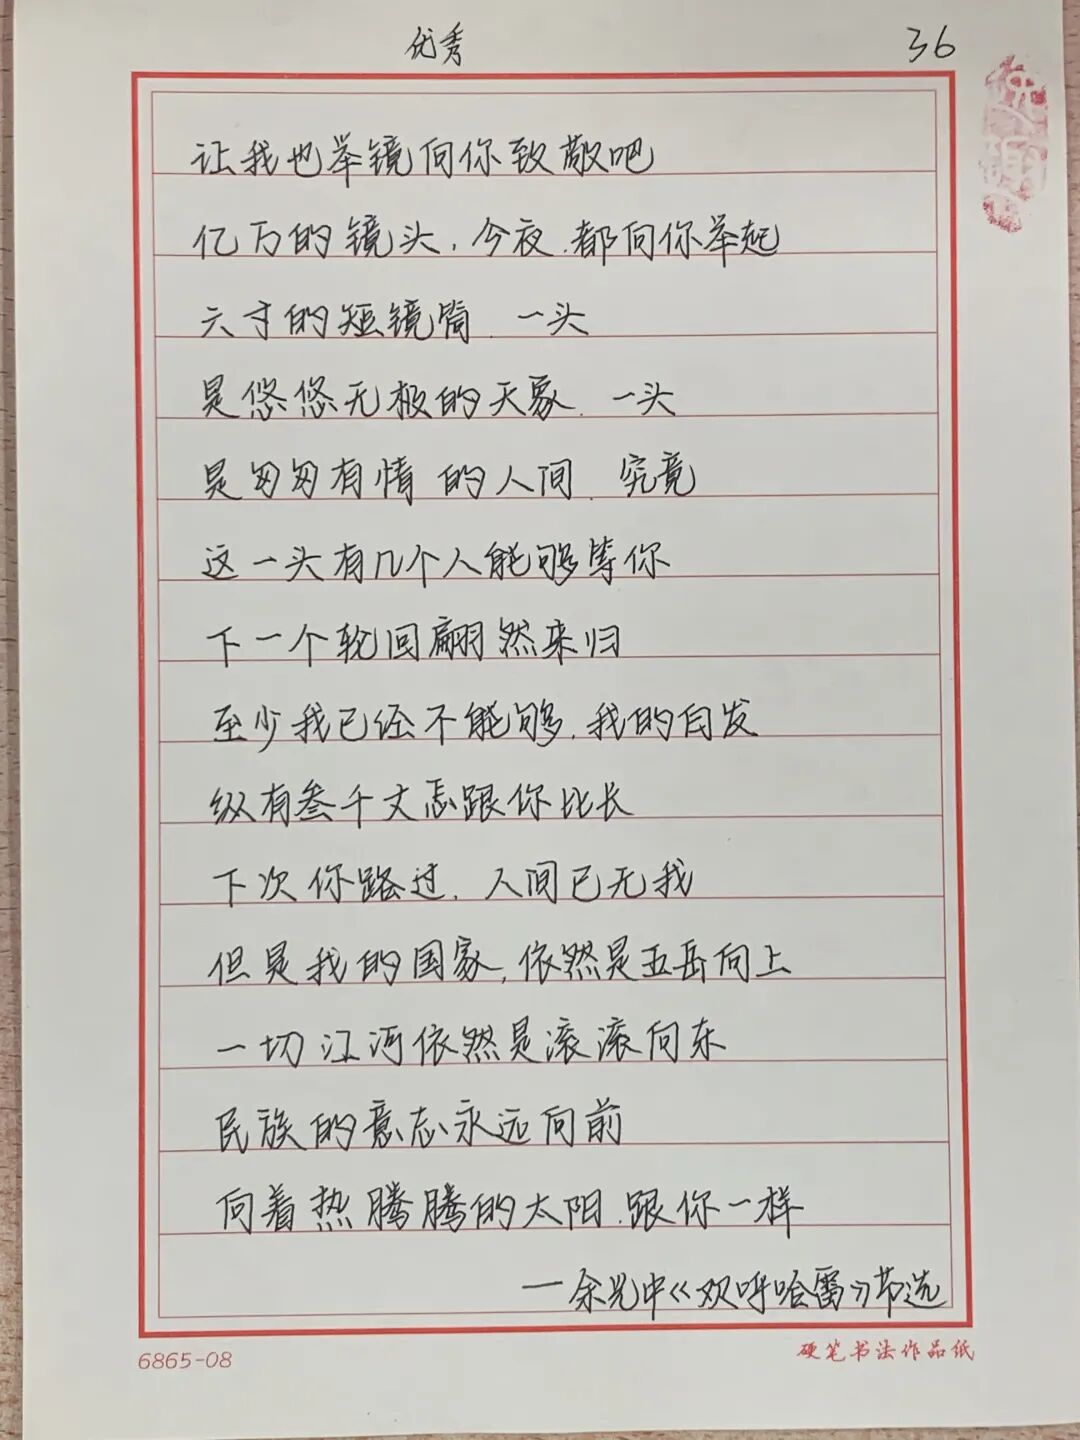 优秀
36
让我也举镜向你致敬吧
亿万的镜头，今夜，都向你举起
六寸的短镜筒，一头
是悠悠无极的天象，一头
是匆匆有情的人间，究竟
这一头有几个人能够等你
下一个轮回翩然来归
至少我已经不能够，我的白发
纵有叁千丈怎跟你比长
下次你路过，人间已无我
但是我的国家，依然是五岳向上
一切江河依然是滚滚向东
民族的意志永远向前
向着热腾腾的太阳，跟你一样
—余光中《欢呼哈雷》节选
6865-08
硬笔书法作品纸